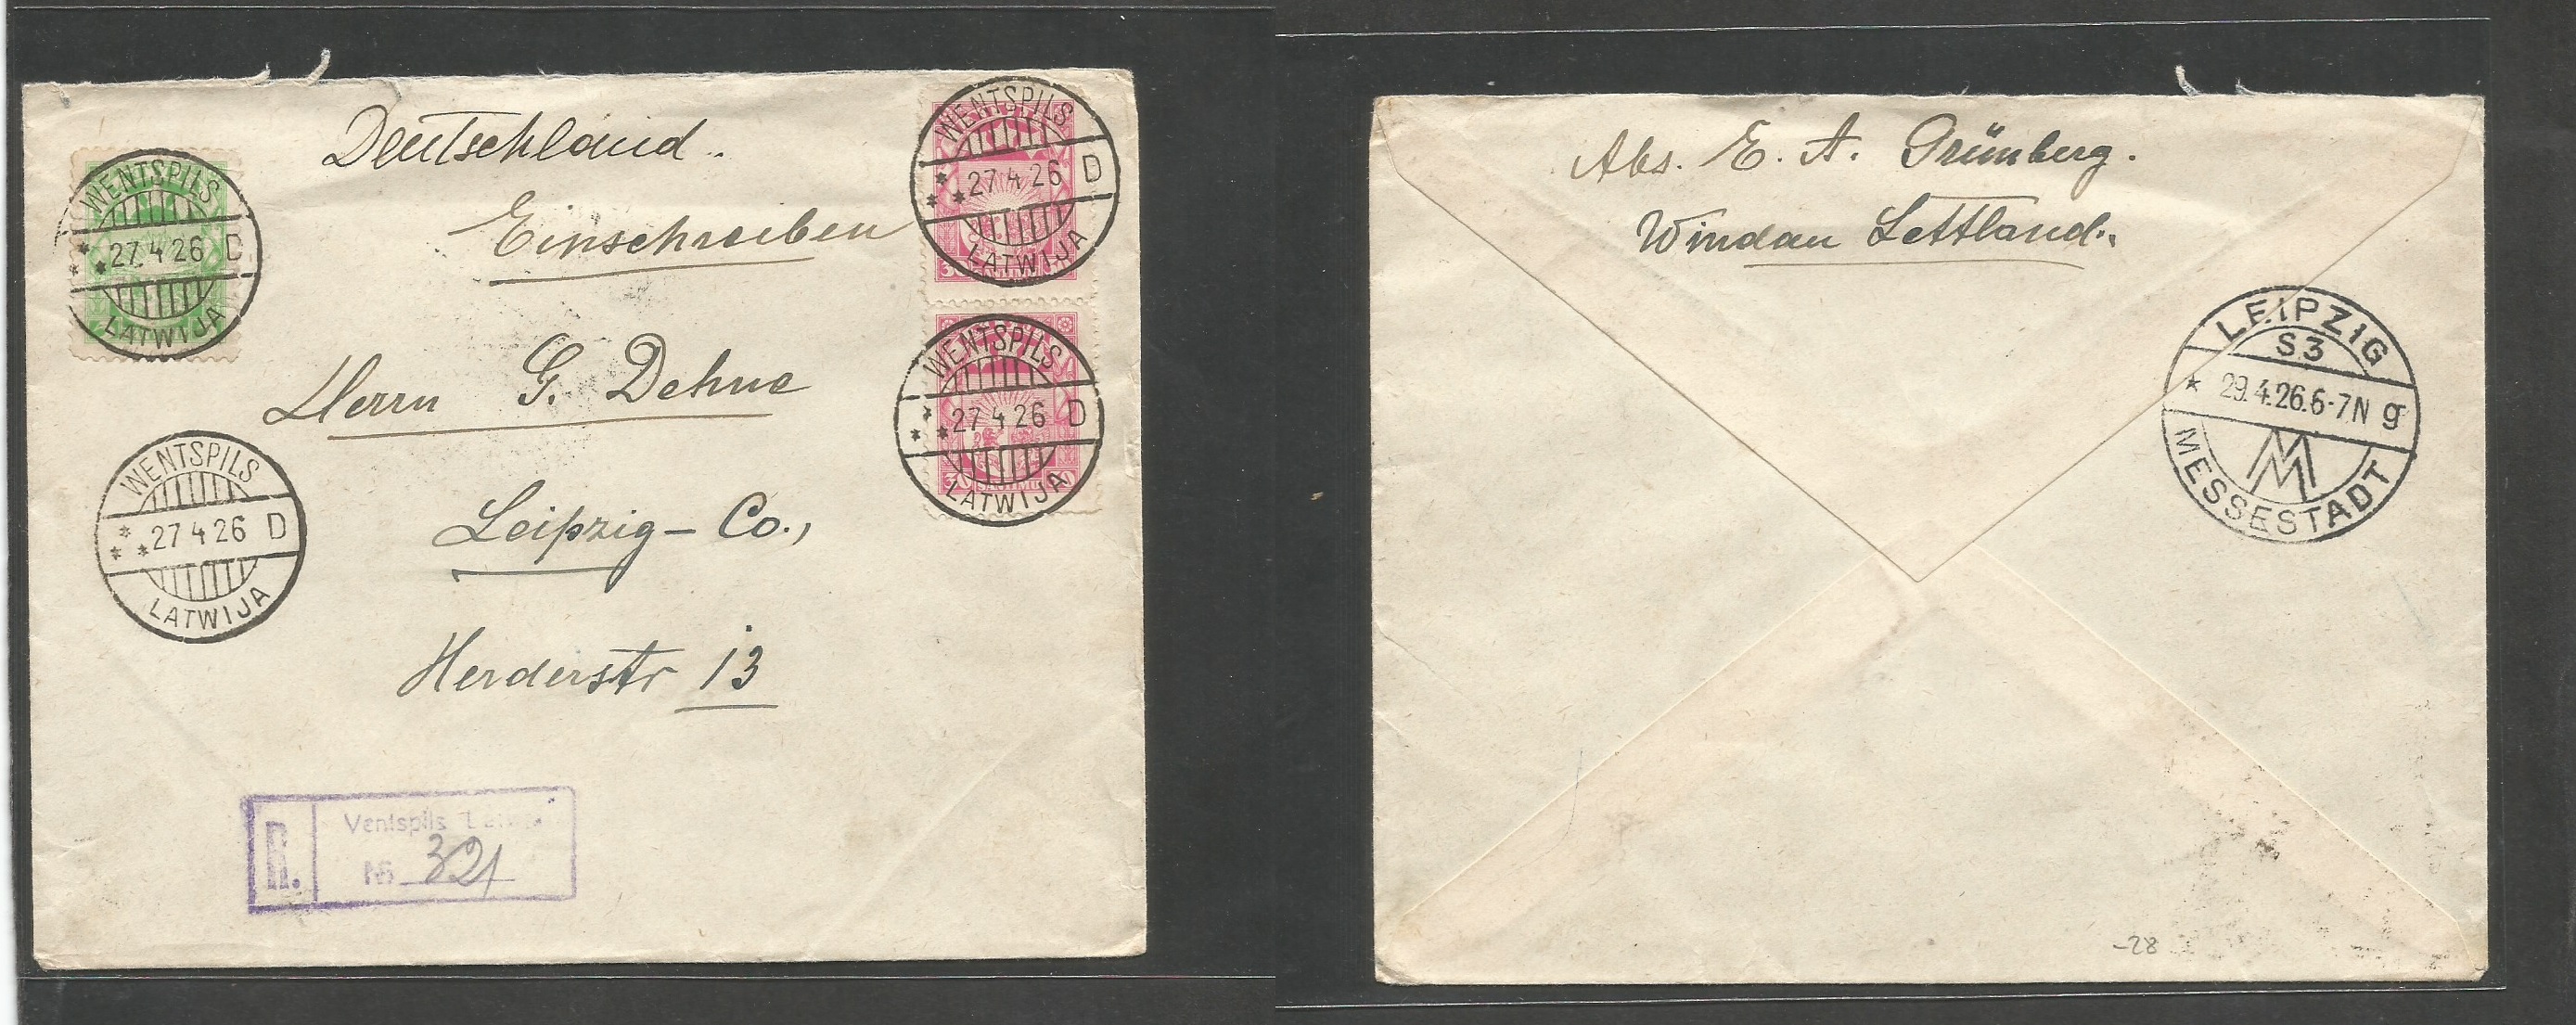 Deutschland..
Einschreiben
Herrn G. Dehne
Leipzig - Co.,
Herderstr 13
WENTSPILS
27 4 26 D
LATWIJA
WENTSPILS
27 4 26 D
LATWIJA
WENTSPILS
27 4 26 D
LATWIJA
WENTSPILS
27 4 26 D
LATWIJA
R.
Ventspils
№ 321
Abs. E. A. Grünberg.
Windau Lettland.
LEIPZIG
S3
* 29.4.26.6-7N g
M
MESSESTADT
-28